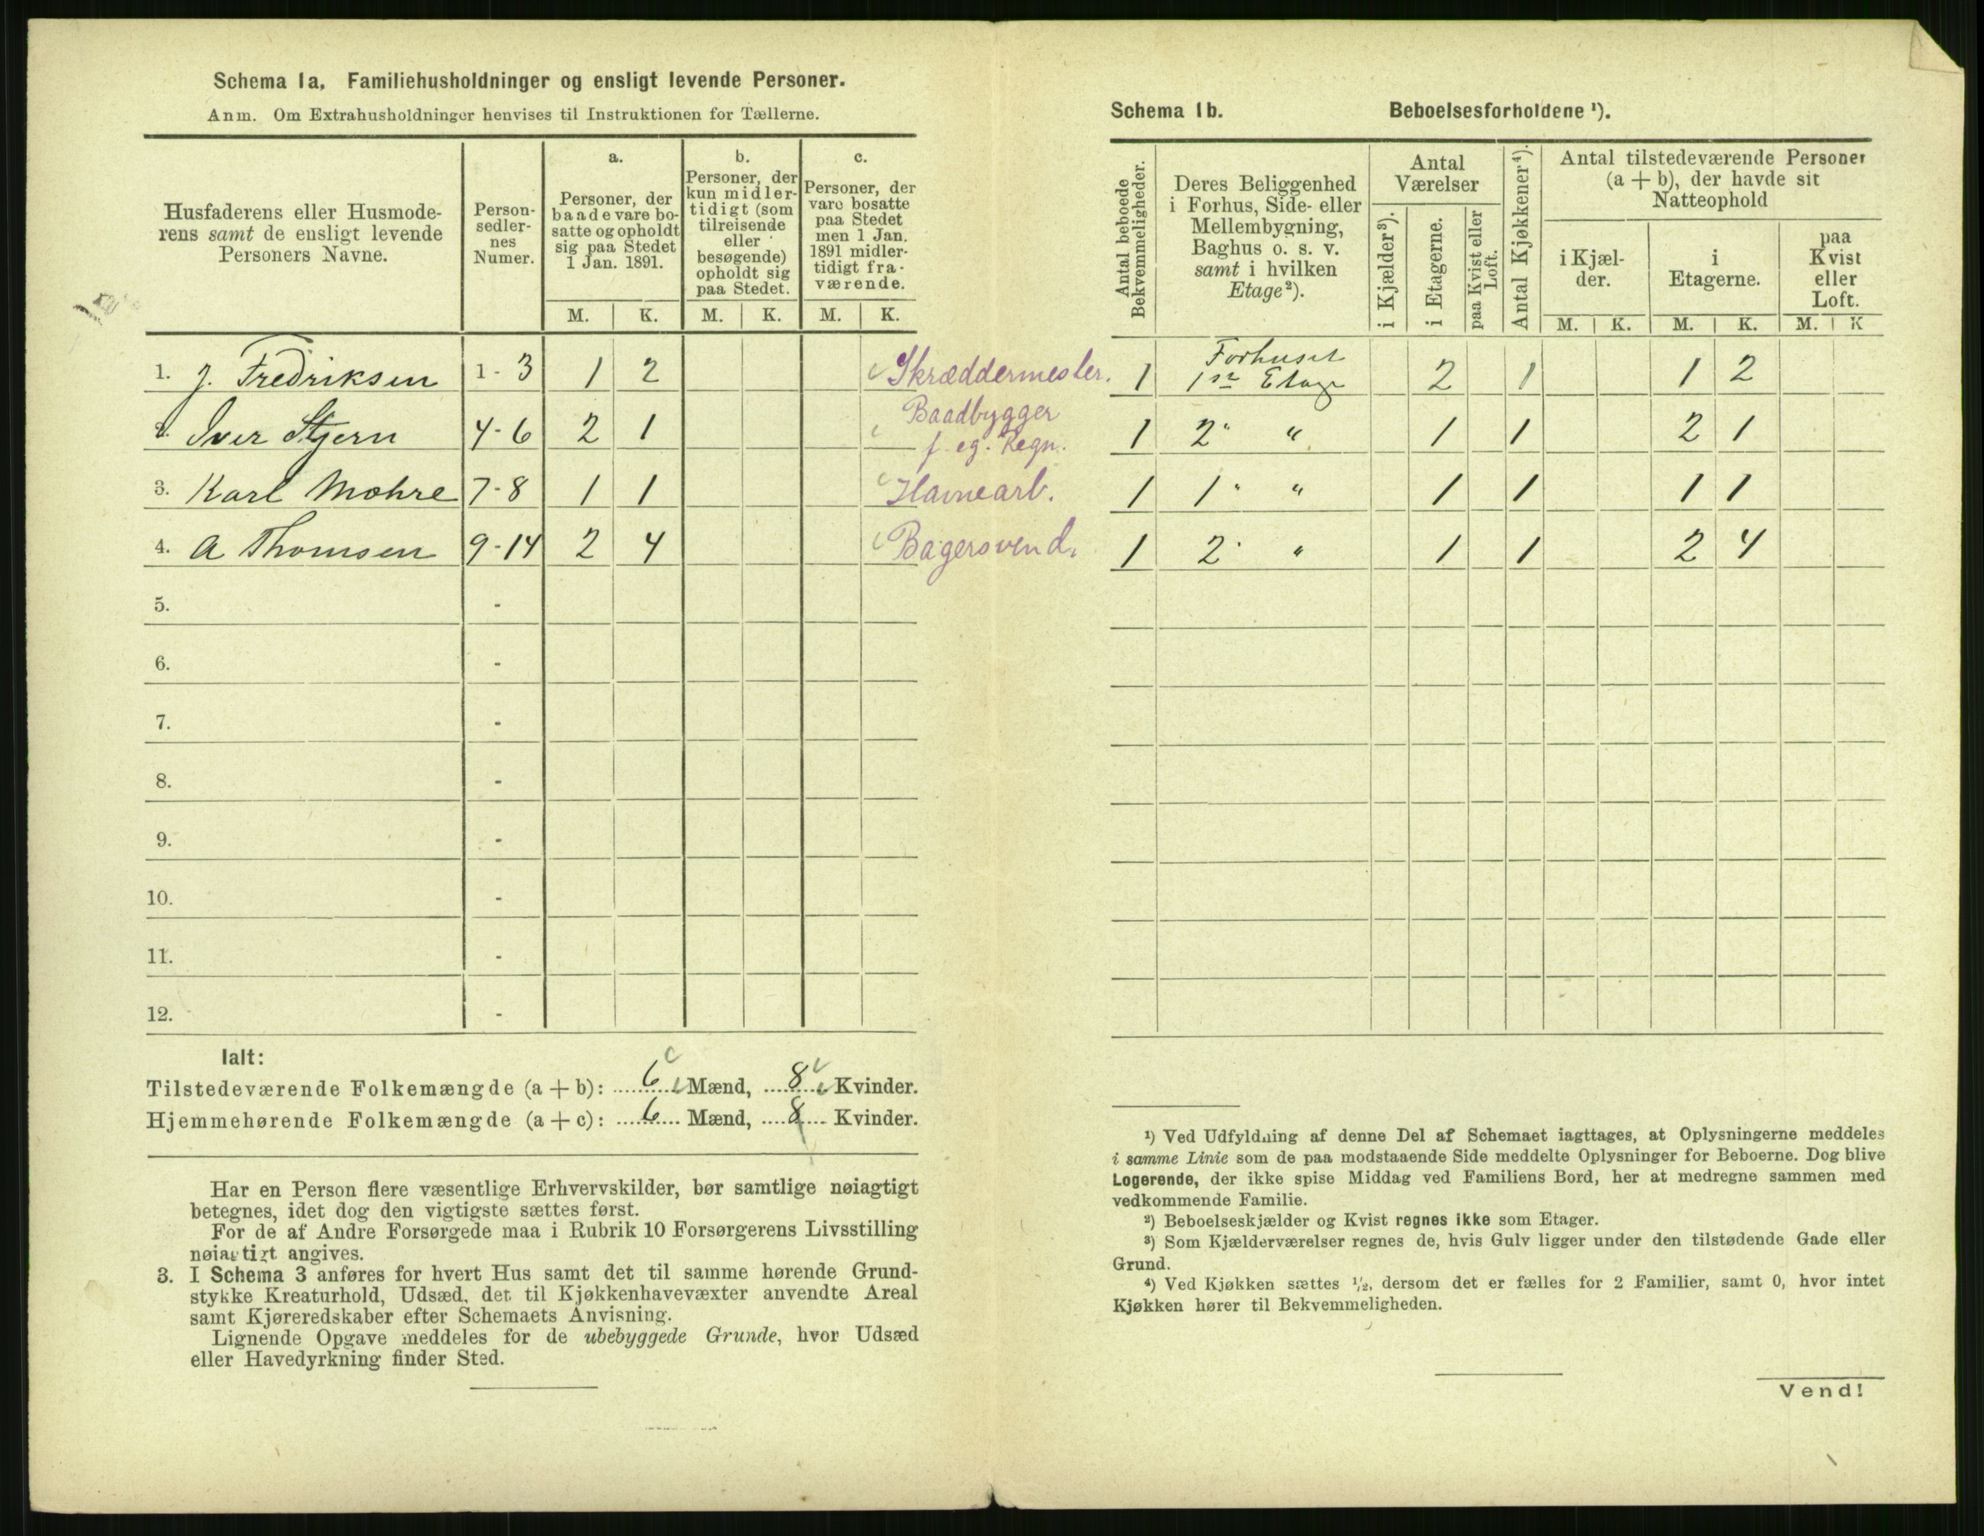 Schema 1a. Familiehusholdninger og ensligt levende Personer.
Anm. Om Extrahusholdninger henvises til Instruktionen for Tællerne.
Husfaderens eller Husmode-
rens samt de ensligt levende
Personers Navne.
Person-
sedler-
nes
Numer.
a.
Personer, der
baade vare bo-
satte og opholdt
sig paa Stedet
1 Jan. 1891.
b.
Personer, der
kun midler-
tidigt (som
tilreisende
eller
besøgende)
opholdt sig
paa Stedet.
c.
Personer, der
vare bosatte
paa Stedet
men 1 Jan.
1891 midler-
tidigt fra-
værende.
M. K. M. K. M. K.
1. J. Fredriksen 1 - 3 1 2 Skræddermester.
2. Iver Stjern 4 - 6 2 1 Baadbygger
f. eg. Regn.
3. Karl Mohre 7 - 8 1 1 Havnearb.
4. A Thomsen 9 - 14 2 4 Bagersvend.
5. -
6. -
7. -
8. -
9. -
10. -
11. -
12. -
Ialt:
Tilstedeværende Folkemængde (a + b): 6 Mænd, 8 Kvinder.
Hjemmehørende Folkemængde (a + c): 6 Mænd, 8 Kvinder.
Har en Person flere væsentlige Erhvervskilder, bør samtlige nøiagtigt
betegnes, idet dog den vigtigste sættes først.
For de af Andre Forsørgede maa i Rubrik 10 Forsørgerens Livsstilling
nøiagtigt angives.
3. I Schema 3 anføres for hvert Hus samt det til samme hørende Grund-
stykke Kreaturhold, Udsæd, det til Kjøkkenhavevæxter anvendte Areal
samt Kjøreredskaber efter Schemaets Anvisning.
Lignende Opgave meddeles for de ubebyggede Grunde, hvor Udsæd
eller Havedyrkning finder Sted.
Schema 1b. Beboelsesforholdene ¹).
Antal beboede
Bekvemmeligheder.
Deres Beliggenhed
i Forhus, Side- eller
Mellembygning,
Baghus o. s. v.
samt i hvilken
Etage²).
Antal
Værelser
i Kjælder³).
i Etagerne.
paa Kvist eller
Loft.
Antal Kjøkkener⁴).
Antal tilstedeværende Personer
(a + b), der havde sit
Natteophold
i Kjæl-
der.
i
Etagerne.
paa
Kvist
eller
Loft.
M. K. M. K. M. K
1 Forhuset
1ste Etage 2 1 1 2
1 2" " 1 1 2 1
1 1" " 1 1 1 1
1 2" " 1 1 2 4
¹) Ved Udfyldning af denne Del af Schemaet iagttages, at Oplysningerne meddeles
i samme Linie som de paa modstaaende Side meddelte Oplysninger for Beboerne. Dog blive
Logerende, der ikke spise Middag ved Familiens Bord, her at medregne sammen med
vedkommende Familie.
²) Beboelseskjælder og Kvist regnes ikke som Etager.
³) Som Kjælderværelser regnes de, hvis Gulv ligger under den tilstødende Gade eller
Grund.
⁴) Ved Kjøkken sættes ½, dersom det er fælles for 2 Familier, samt 0, hvor intet
Kjøkken hører til Bekvemmeligheden.
Vend!